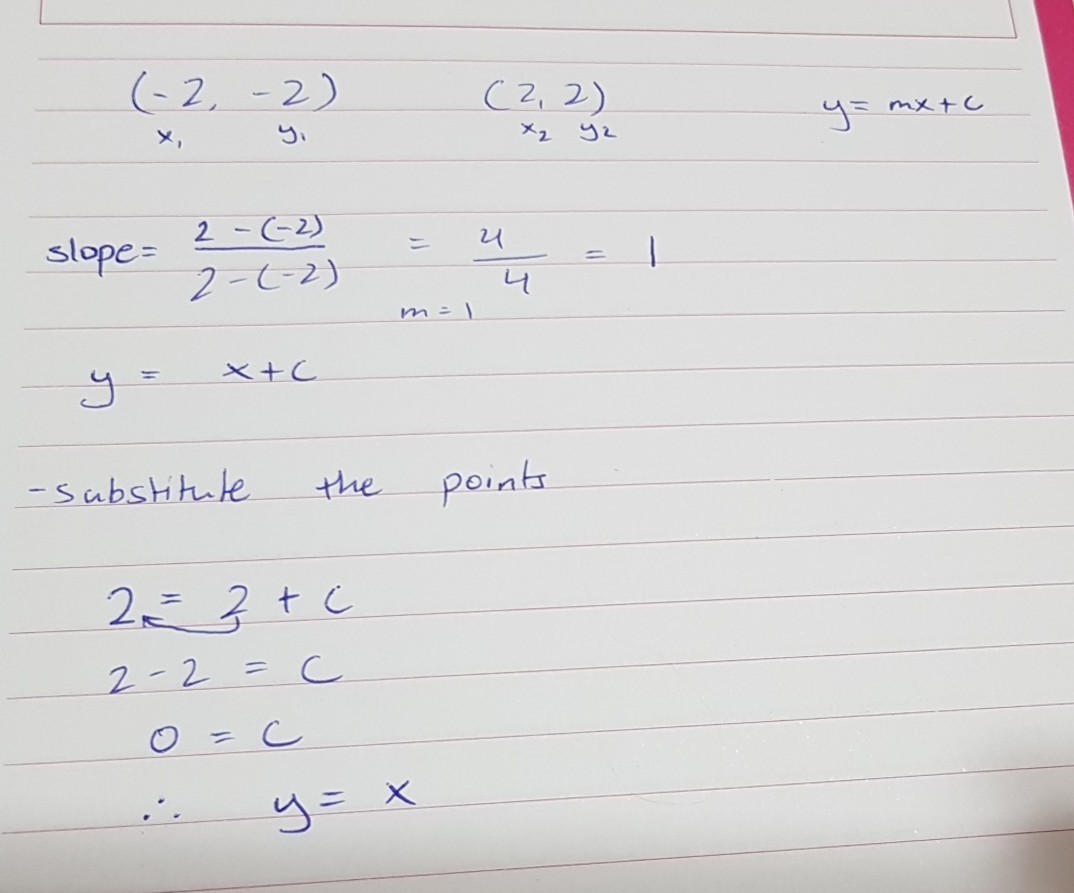 (-2, -2) (2, 2) y = mx+c
x₁ y₁ x₂ y₂
slope = 2 - (-2) / 2 - (-2) = 4 / 4 = 1
m = 1
y = x+c
- substitute the points
2 = 2 + c
2 - 2 = c
0 = c
∴ y = x